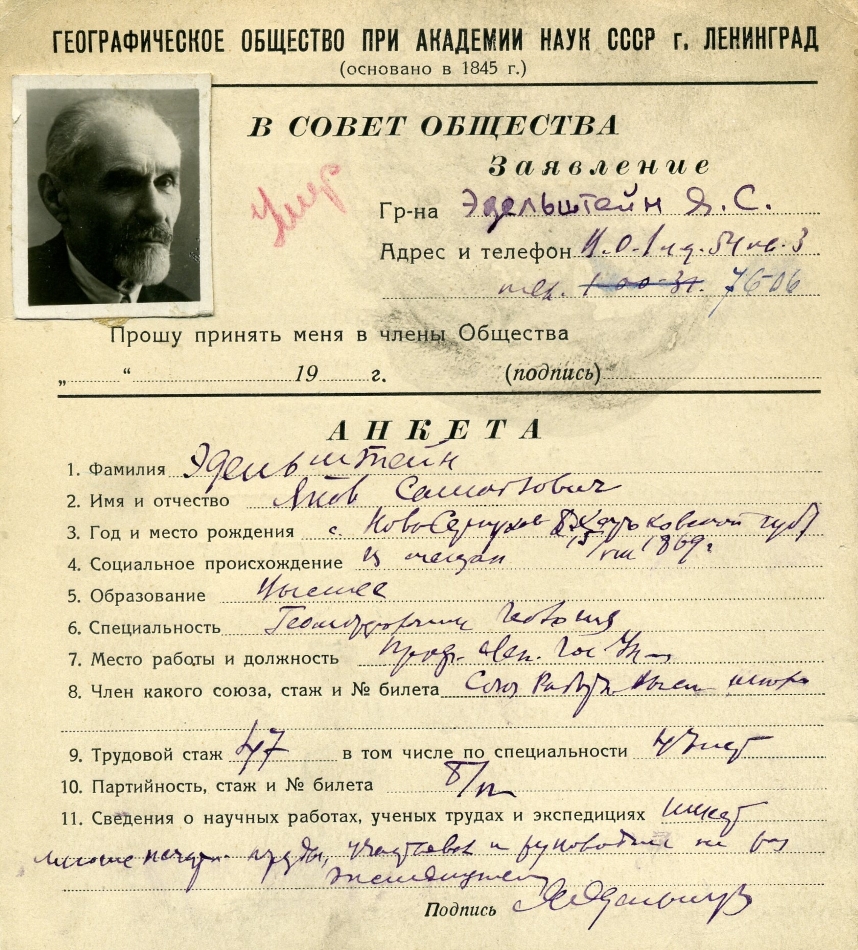 ГЕОГРАФИЧЕСКОЕ ОБЩЕСТВО ПРИ АКАДЕМИИ НАУК СССР г. ЛЕНИНГРАД
(основано в 1845 г.)
В СОВЕТ ОБЩЕСТВА
Заявление
умер
Гр-на Эдельштейн Я. С.
Адрес и телефон В.О. 1 л. д. 54 кв. 3
тел. 1-00-31. 76-06
Прошу принять меня в члены Общества
„ “ 19 г. (подпись)
АНКЕТА
1. Фамилия Эдельштейн
2. Имя и отчество Яков Самойлович
3. Год и место рождения с. Харьковской губ
4. Социальное происхождение из мещан 1869 г.
5. Образование Высшее
6. Специальность Геоморфология
7. Место работы и должность проф. Лен. Гос. Ун.
8. Член какого союза, стаж и № билета Союз Работн. Высш. школы
9. Трудовой стаж 47 в том числе по специальности 47 лет
10. Партийность, стаж и № билета б/п
11. Сведения о научных работах, ученых трудах и экспедициях имеет
печатн. труды, участвовал и руководил не раз
экспедициями
Подпись ЯЭдельштейн